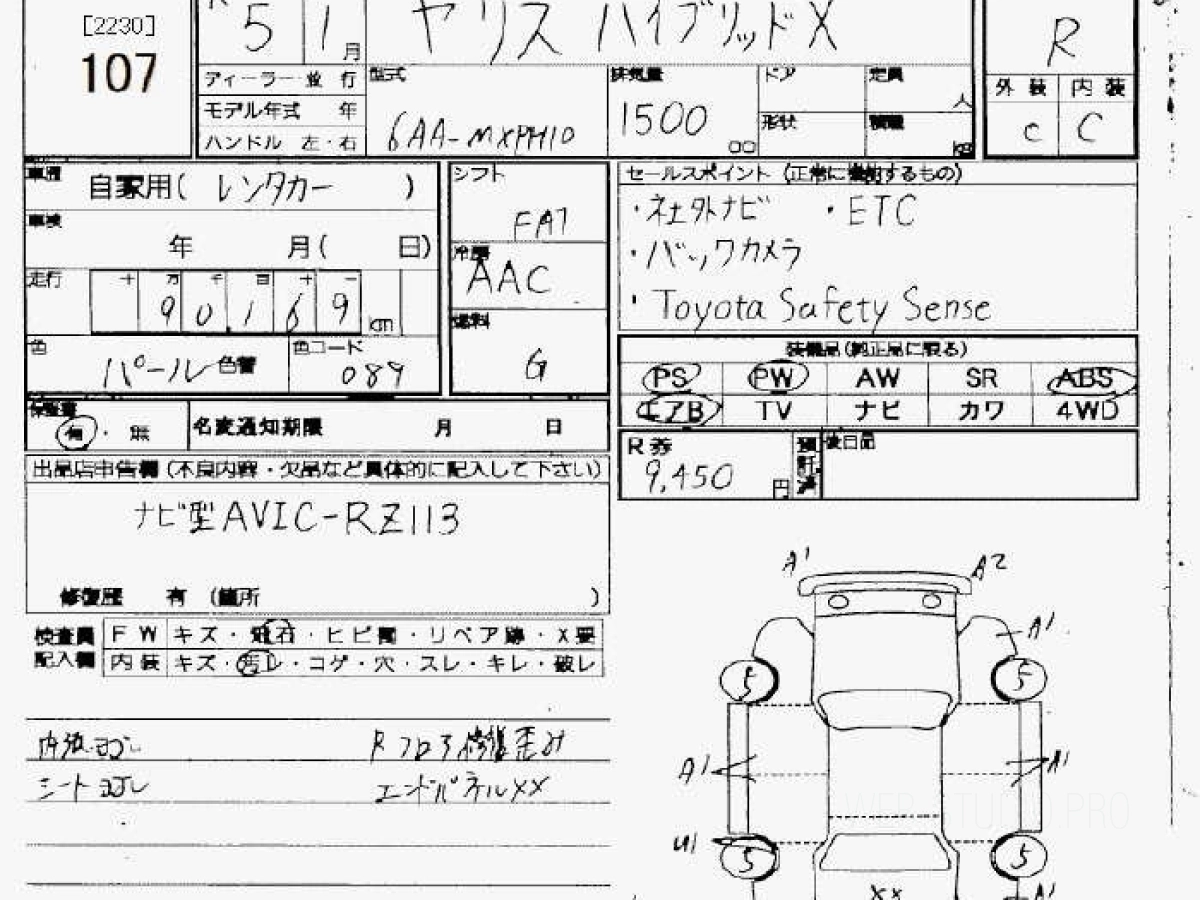 [2230]
107
5 1月
ヤリス ハイブリッドX
R
ディーラー 並行
モデル年式 年
ハンドル 左・右
型式
6AA-MXPH10
排気量
1500
cc
ドア
定員
人
形状
積載
kg
外装 内装
C C
車歴
自家用( レンタカー )
車検
年 月( 日)
走行
十 万 千 百 十 一
90,169
km
色
パール 色替
色コード
089
シフト
FAT
冷房
AAC
燃料
G
セールスポイント (正常に機能するもの)
・社外ナビ ・ETC
・バックカメラ
・Toyota Safety Sense
装備品(純正品に限る)
PS PW AW SR ABS
エアB TV ナビ カワ 4WD
保証書
有・無
名変通知期限 月 日
R券
9,450
円
預託済
後日品
出品店申告欄(不良内容・欠品など具体的に記入して下さい)
ナビ型AVIC-RZ113
修復歴 有 (箇所 )
検査員
記入欄
FW キズ・飛石・ヒビ割・リペア跡・X要
内装 キズ・汚レ・コゲ・穴・スレ・キレ・破レ
内張ヨゴレ
Rフロア修復歪み
シートヨゴレ
エンドパネルXX
A1 A2
A1
5 5
A1 A1
U1
5 5
XX
A1
WEB STUDIO PRO